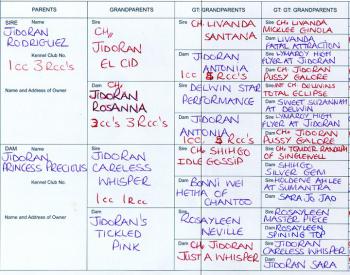 PARENTS
GRANDPARENTS
GT: GRANDPARENTS
GT: GT: GRANDPARENTS
SIRE
JIDORAN
RODRIGUEZ
Kennel Club No.
1cc 3Rcc's
Name and Address of Owner
DAM
JIDORAN
PRINCESS PRECIOUS
Kennel Club No.
Name and Address of Owner
Sire
CH,
JIDORAN
EL CID
Dam
CH,
JIDORAN
ROSANNA
3cc's 3Rcc's
Sire
JIDORAN
CARELESS
WHISPER
1cc 1Rcc
Dam
JIDORAN'S
TICKLED
PINK
Sire
CH, LIVANDA
SANTANA
Dam
JIDORAN
ANTONIA
1cc Rcc's
Sire
DELWIN STAR
PERFORMANCE
Dam
JIDORAN
ANTONIA
1cc Rcc's
Sire
CH SHIHGO
IDLE GOSSIP
Dam
BONNI WEI
HETHA OF
CHANTOO
Sire
ROSAYLEEN
NEVILLE
Dam
CH. JIDORAN
JUST A WHISPER
Sire
CH LIVANDA
MICKLEE GINOLA
Dam
LIVANDA
FATAL ATTRACTION
Sire
LYMARCY HIGH
FLYER AT JIDORAN
Dam
CH. JIDORAN
PUSSY GALORE
Sire
CH. DELWINS
TOTAL ECLIPSE
Dam
SWEET SUZANNAH
AT DELWIN
Sire
LYMARCY HIGH
FLYER AT JIDORAN
Dam
CH. JIDORAN
PUSSY GALORE
Sire
CH TOWDER RANDUM
OF SINGLEWELL
Dam
SHIHGO
SILVER GEM
Sire
HOLDENE AH LEE
AT SUMANTRA
Dam
SARA JO JAO
Sire
ROSAYLEEN
MASTER PIECE
Dam
ROSAYLEEN
SPINING TOP
Sire
JIDORAN
CARELESS WHISPER
Dam
JIDORAN SARA